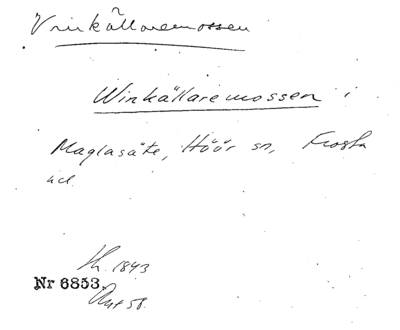 Vinkällaremossen
Winkällaremossen i
Maglasäte, Höör sn, Frosta
hd.
1843
Nr 6853.